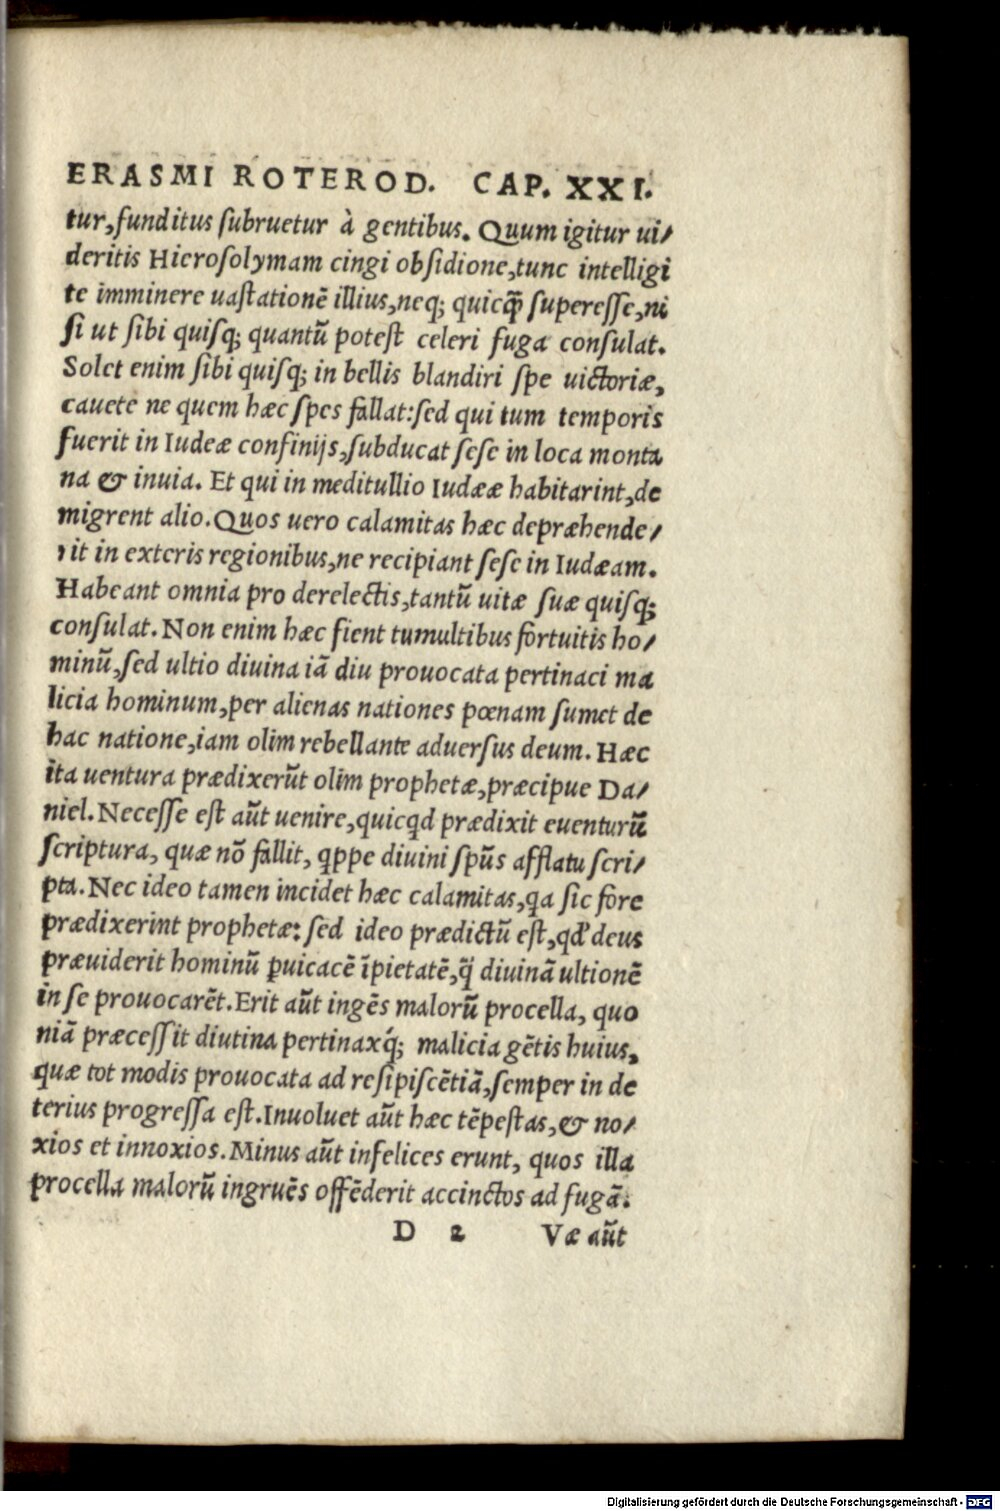 ERASMI ROTEROD. CAP. XXI.
tur,funditus ſubruetur à gentibus. Quum igitur ui/
deritis Hieroſolymam cingi obſidione,tunc intelligi
te imminere uaſtationē illius,neq; quicq̄ ſupereſſe,ni
ſi ut ſibi quiſq; quantū poteſt celeri fuga conſulat.
Solet enim ſibi quiſq; in bellis blandiri ſpe uictoriæ,
cauete ne quem hæc ſpes fallat:ſed qui tum temporis
fuerit in Iudeæ confinijs,ſubducat ſeſe in loca monta
na & inuia. Et qui in meditullio Iudææ habitarint,de
migrent alio.Quos uero calamitas hæc depræhende/
rit in exteris regionibus,ne recipiant ſeſe in Iudæam.
Habeant omnia pro derelectis,tantū uitæ ſuæ quiſq;
conſulat. Non enim hæc fient tumultibus fortuitis ho/
minū,ſed ultio diuina iā diu prouocata pertinaci ma
licia hominum,per alienas nationes pœnam ſumet de
hac natione,iam olim rebellante aduerſus deum. Hæc
ita uentura prædixerūt olim prophetæ,præcipue Da/
niel. Neceſſe eſt aūt uenire,quicqd prædixit euenturū
ſcriptura, quæ nō fallit, qppe diuini ſpūs afflatu ſcri/
pta. Nec ideo tamen incidet hæc calamitas,qa ſic fore
prædixerint prophetæ: ſed ideo prædictū eſt,qd' deus
præuiderit hominū puicacē īpietatē,q̄ diuinā ultionē
in ſe prouocarēt.Erit aūt ingēs malorū procella, quo
niā præceſſit diutina pertinaxq́; malicia gētis huius,
quæ tot modis prouocata ad reſipiſcētiā,ſemper in de
terius progreſſa eſt.Inuoluet aūt hæc tēpeſtas,& no/
xios et innoxios. Minus aūt infelices erunt, quos illa
procella malorū ingruēs offēderit accinctos ad fugā.
D 2 Væ aūt
Digitalisierung gefördert durch die Deutsche Forschungsgemeinschaft - DFG